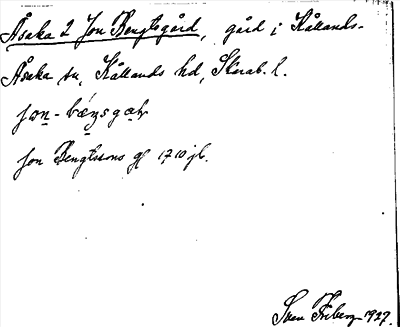 Åsaka 2 Jon Bengtsgård, gård i Kållands-
Åsaka sn, Kållands hd, Skarab. l.
jon-bæŋsgaḷ
Jon Bengtssons gd 1710 jb.
Sven Friberg 1927.